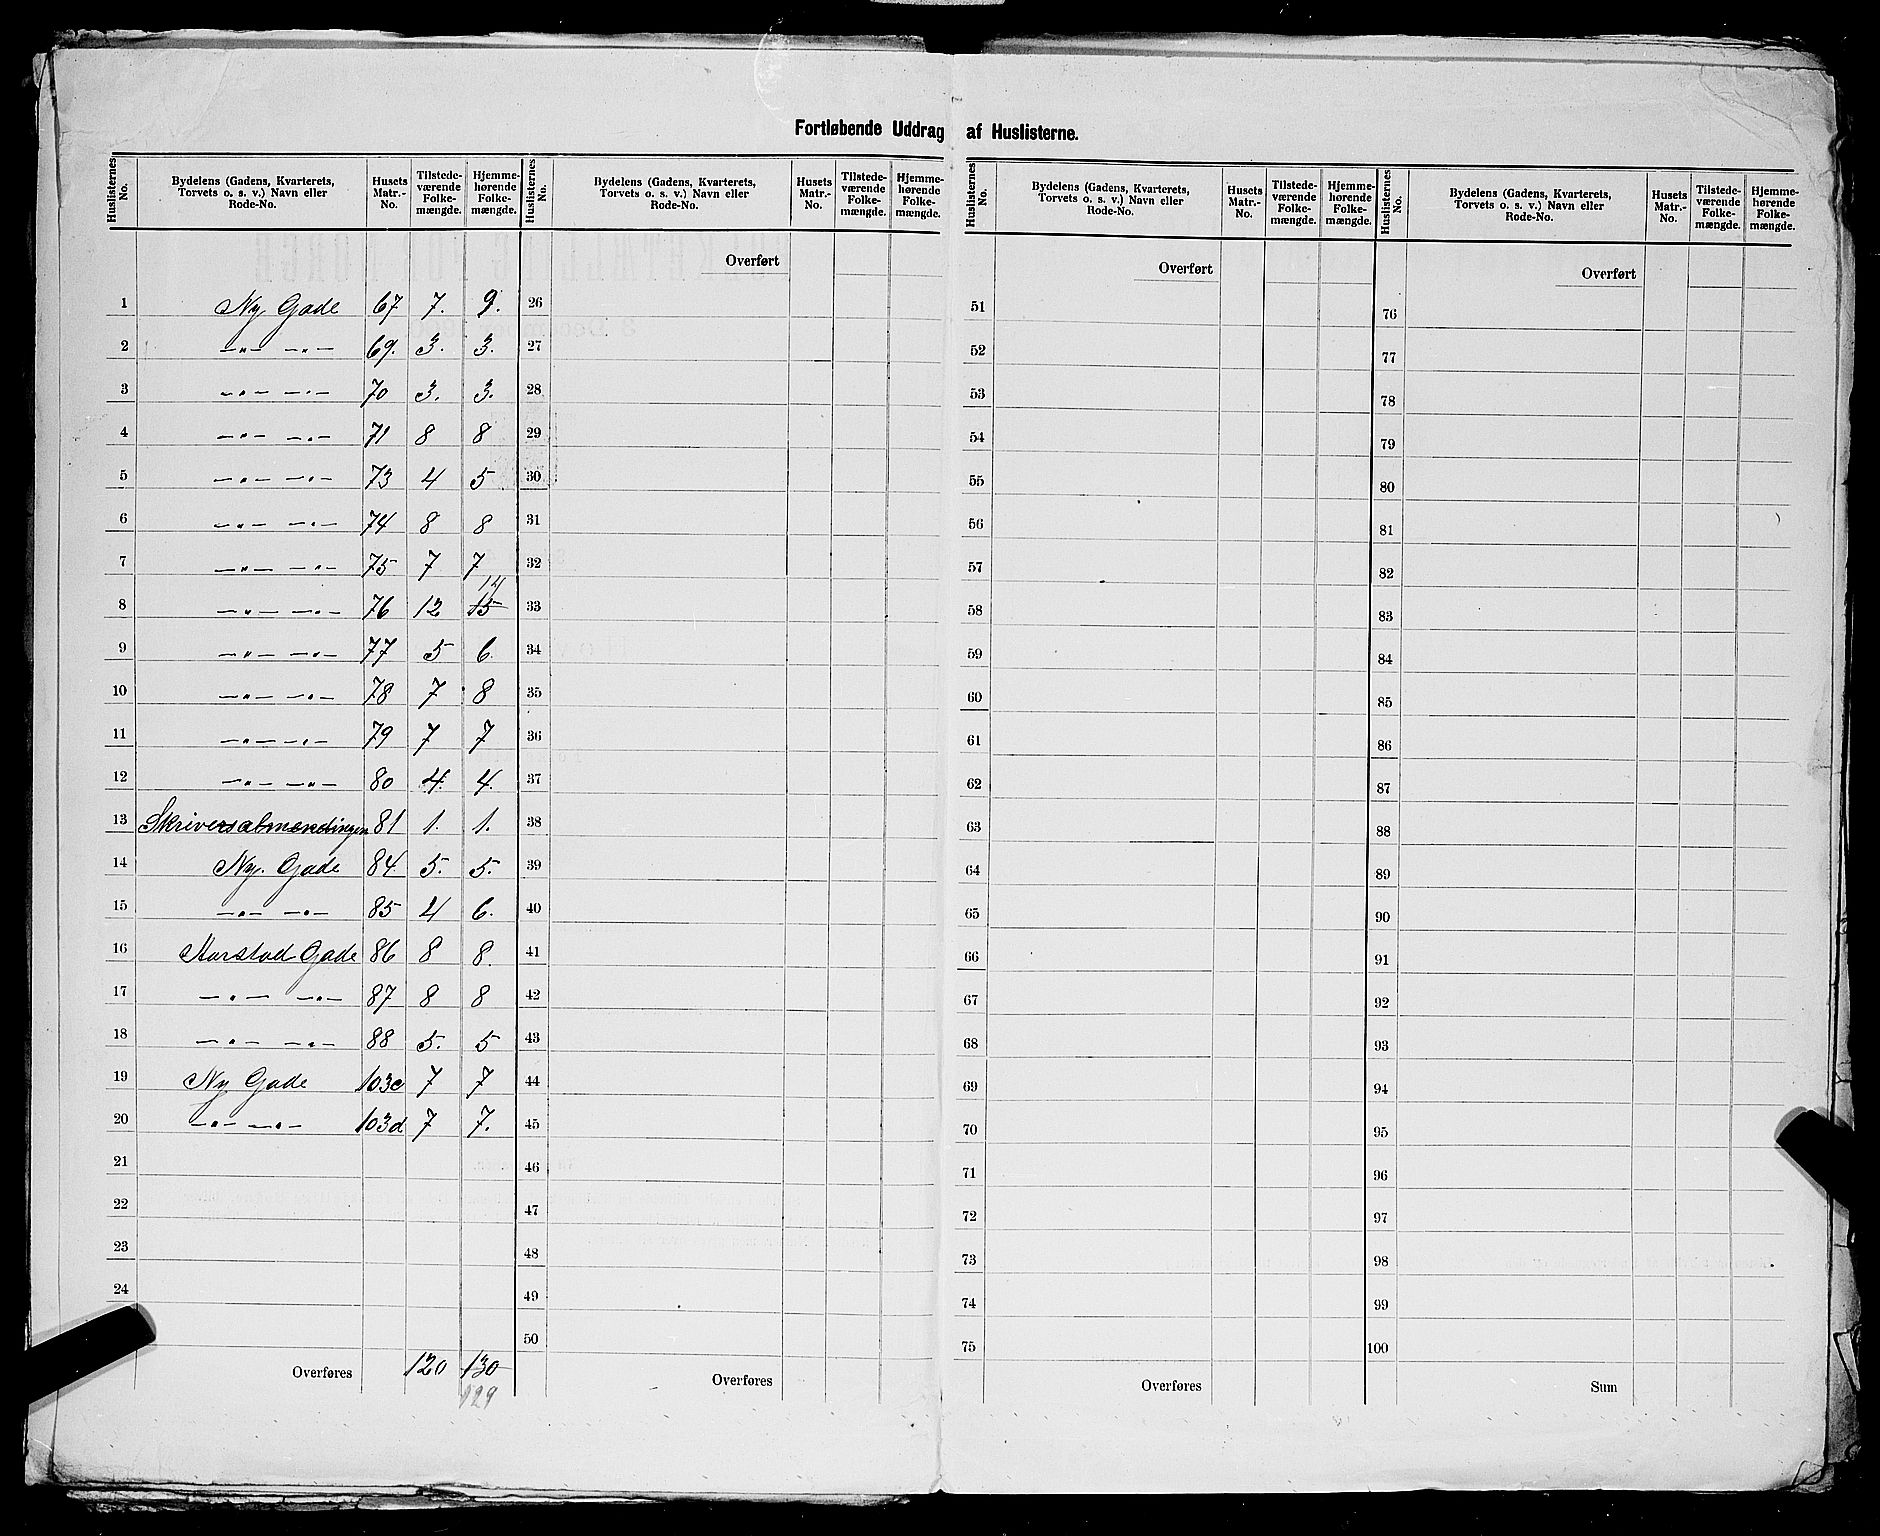 Fortløbende Uddrag af Huslisterne.
Huslisternes No. | Bydelens (Gadens, Kvarterets, Torvets o. s. v.) Navn eller Rode-No. | Husets Matr.-No. | Tilstedeværende Folkemængde. | Hjemmehørende Folkemængde.
1 Ny Gade 67 7. 9.
2 —„— —„— 69. 3. 3.
3 —„— —„— 70 3. 3.
4 —„— —„— 71 8 8
5 —„— —„— 73 4 5
6 —„— —„— 74 8 8
7 —„— —„— 75 7 7
8 —„— —„— 76 12 15 14
9 —„— —„— 77 5 6.
10 —„— —„— 78 7 8
11 —„— —„— 79 7 7
12 —„— —„— 80 4. 4.
13 Skriversalmendingen 81 1. 1.
14 Ny. Gade 84 5. 5.
15 —„— —„— 85 4 6.
16 Aarstad Gade 86 8 8.
17 —„— —„— 87 8 8
18 —„— —„— 88 5. 5
19 Ny Gade 103c 7 7
20 —„— —„— 103d 7 7.
21
22
23
24
Overføres 120 130
129
Huslisternes No. | Bydelens (Gadens, Kvarterets, Torvets o. s. v.) Navn eller Rode-No. | Husets Matr.-No. | Tilstedeværende Folkemængde. | Hjemmehørende Folkemængde.
Overført
26
27
28
29
30
31
32
33
34
35
36
37
38
39
40
41
42
43
44
45
46
47
48
49
50
Overføres
Huslisternes No. | Bydelens (Gadens, Kvarterets, Torvets o. s. v.) Navn eller Rode-No. | Husets Matr.-No. | Tilstedeværende Folkemængde. | Hjemmehørende Folkemængde.
Overført
51
52
53
54
55
56
57
58
59
60
61
62
63
64
65
66
67
68
69
70
71
72
73
74
75
Overføres
Huslisternes No. | Bydelens (Gadens, Kvarterets, Torvets o. s. v.) Navn eller Rode-No. | Husets Matr.-No. | Tilstedeværende Folkemængde. | Hjemmehørende Folkemængde.
Overført
76
77
78
79
80
81
82
83
84
85
86
87
88
89
90
91
92
93
94
95
96
97
98
99
100
Sum